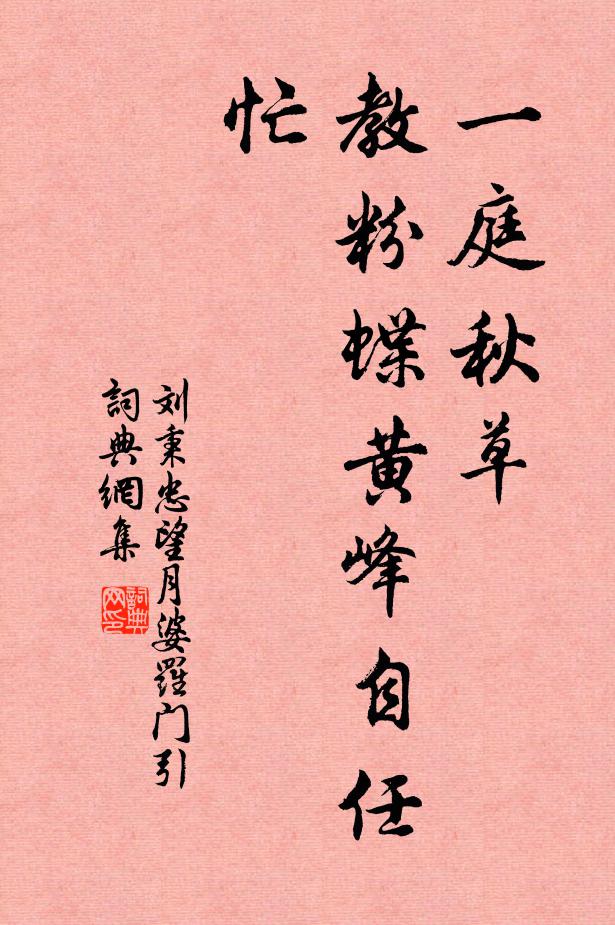 一庭秋草
教粉蝶黄峰自任
忙
刘秉忠望月婆羅门引
詞典網集
詞典
网印